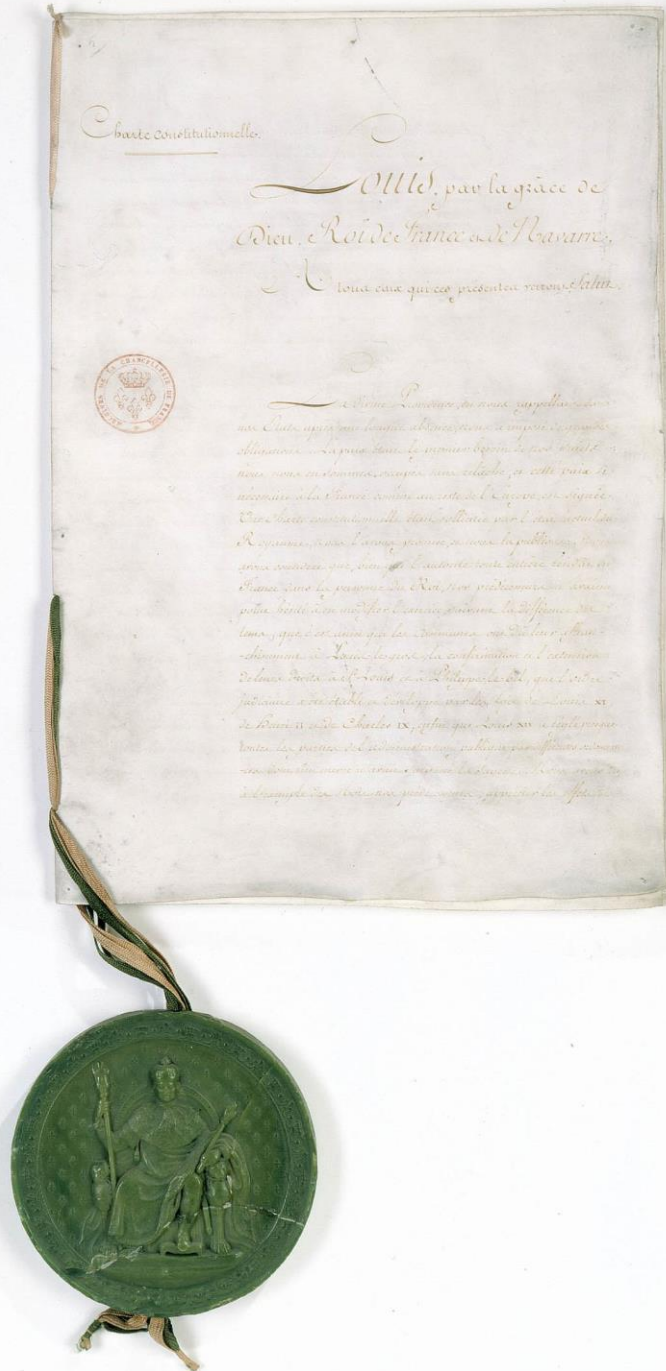 Charte constitutionnelle.
Louis, par la grâce de
Dieu, Roi de France et de Navarre,
A tous ceux qui ces présentes verront, Salut.
ARCHIVES DE LA CHANCELLERIE DE FRANCE
La divine Providence, en nous rappellant dans
nos États après une longue absence, nous a imposé de grandes
obligations. La paix était le premier besoin de nos sujets :
nous nous en sommes occupés sans relâche ; et cette paix si
nécessaire à la France comme au reste de l'Europe, est signée.
Une charte constitutionnelle était sollicitée par l'état actuel du
Royaume, nous l'avons promise, et nous la publions. Nous
avons considéré que, bien que l'autorité toute entière résidât en
France dans la personne du Roi, nos prédécesseurs n'avaient
point hésité à en modifier l'exercice, suivant la différence des
tems ; que c'est ainsi que les Communes ont dû leur affran-
chissement à Louis le gros, la confirmation et l'extension
de leurs droits à St Louis et à Philippe le bel ; que l'ordre
judiciaire a été établi et développé par les lois de Louis XI,
de Henri II et de Charles IX, enfin que Louis XIV a réglé presque
toutes les parties de l'administration publique par